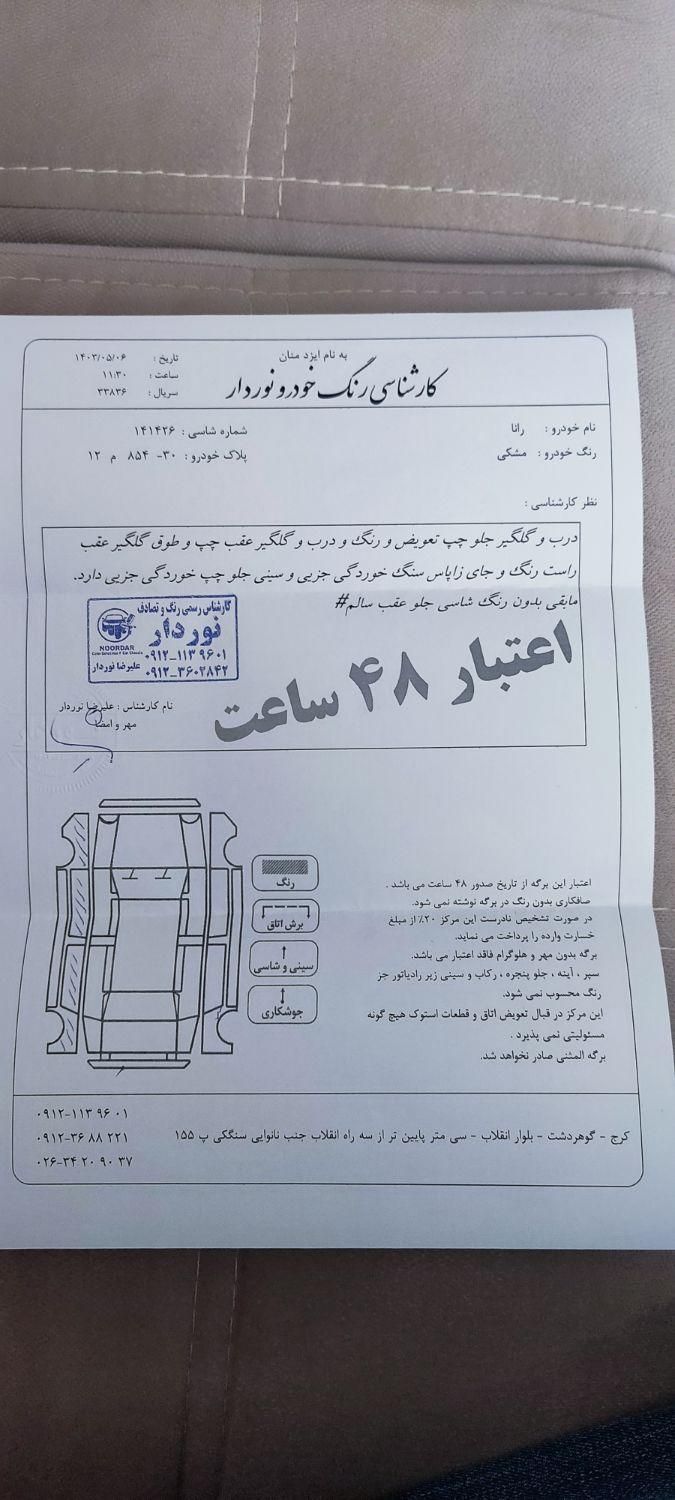 به نام ایزد منان
کارشناسی رنگ خودرو نوردار
تاریخ : ۱۴۰۳/۰۵/۰۶
ساعت : ۱۱:۳۰
سریال : ۳۳۸۳۶
نام خودرو : رانا
شماره شاسی : ۱۴۱۴۲۶
رنگ خودرو : مشکی
پلاک خودرو : ۳۰- ۸۵۴ م ۱۲
نظر کارشناسی :
درب و گلگیر جلو چپ تعویض و رنگ و درب و گلگیر عقب چپ و طوق گلگیر عقب
راست رنگ و جای زاپاس سنگ خوردگی جزیی و سینی جلو چپ خوردگی جزیی دارد.
مابقی بدون رنگ شاسی جلو عقب سالم#
کارشناس رسمی رنگ و تصادف
نوردار
NOORDAR
۰۹۱۲-۱۱۳۹۶۰۱
۰۹۱۲-۳۶۰۲۸۴۲
علیرضا نوردار
اعتبار ۴۸ ساعت
نام کارشناس : علیرضا نوردار
مهر و امضا
رنگ
برش اتاق
سینی و شاسی
جوشکاری
اعتبار این برگه از تاریخ صدور ۴۸ ساعت می باشد .
صافکاری بدون رنگ در برگه نوشته نمی شود.
در صورت تشخیص نادرست این مرکز ۲۰٪ از مبلغ
خسارت وارده را پرداخت می نماید.
برگه بدون مهر و هلوگرام فاقد اعتبار می باشد.
سپر ، آینه ، جلو پنجره ، رکاب و سینی زیر رادیاتور جز
رنگ محسوب نمی شود.
این مرکز در قبال تعویض اتاق و قطعات استوک هیچ گونه
مسئولیتی نمی پذیرد .
برگه المثنی صادر نخواهد شد.
کرج - گوهردشت - بلوار انقلاب - سی متر پایین تر از سه راه انقلاب جنب نانوایی سنگکی پ ۱۵۵
۰۹۱۲-۱۱۳ ۹۶ ۰۱
۰۹۱۲-۳۶ ۸۸ ۲۲۱
۰۲۶-۳۴ ۲۰ ۹۰ ۳۷